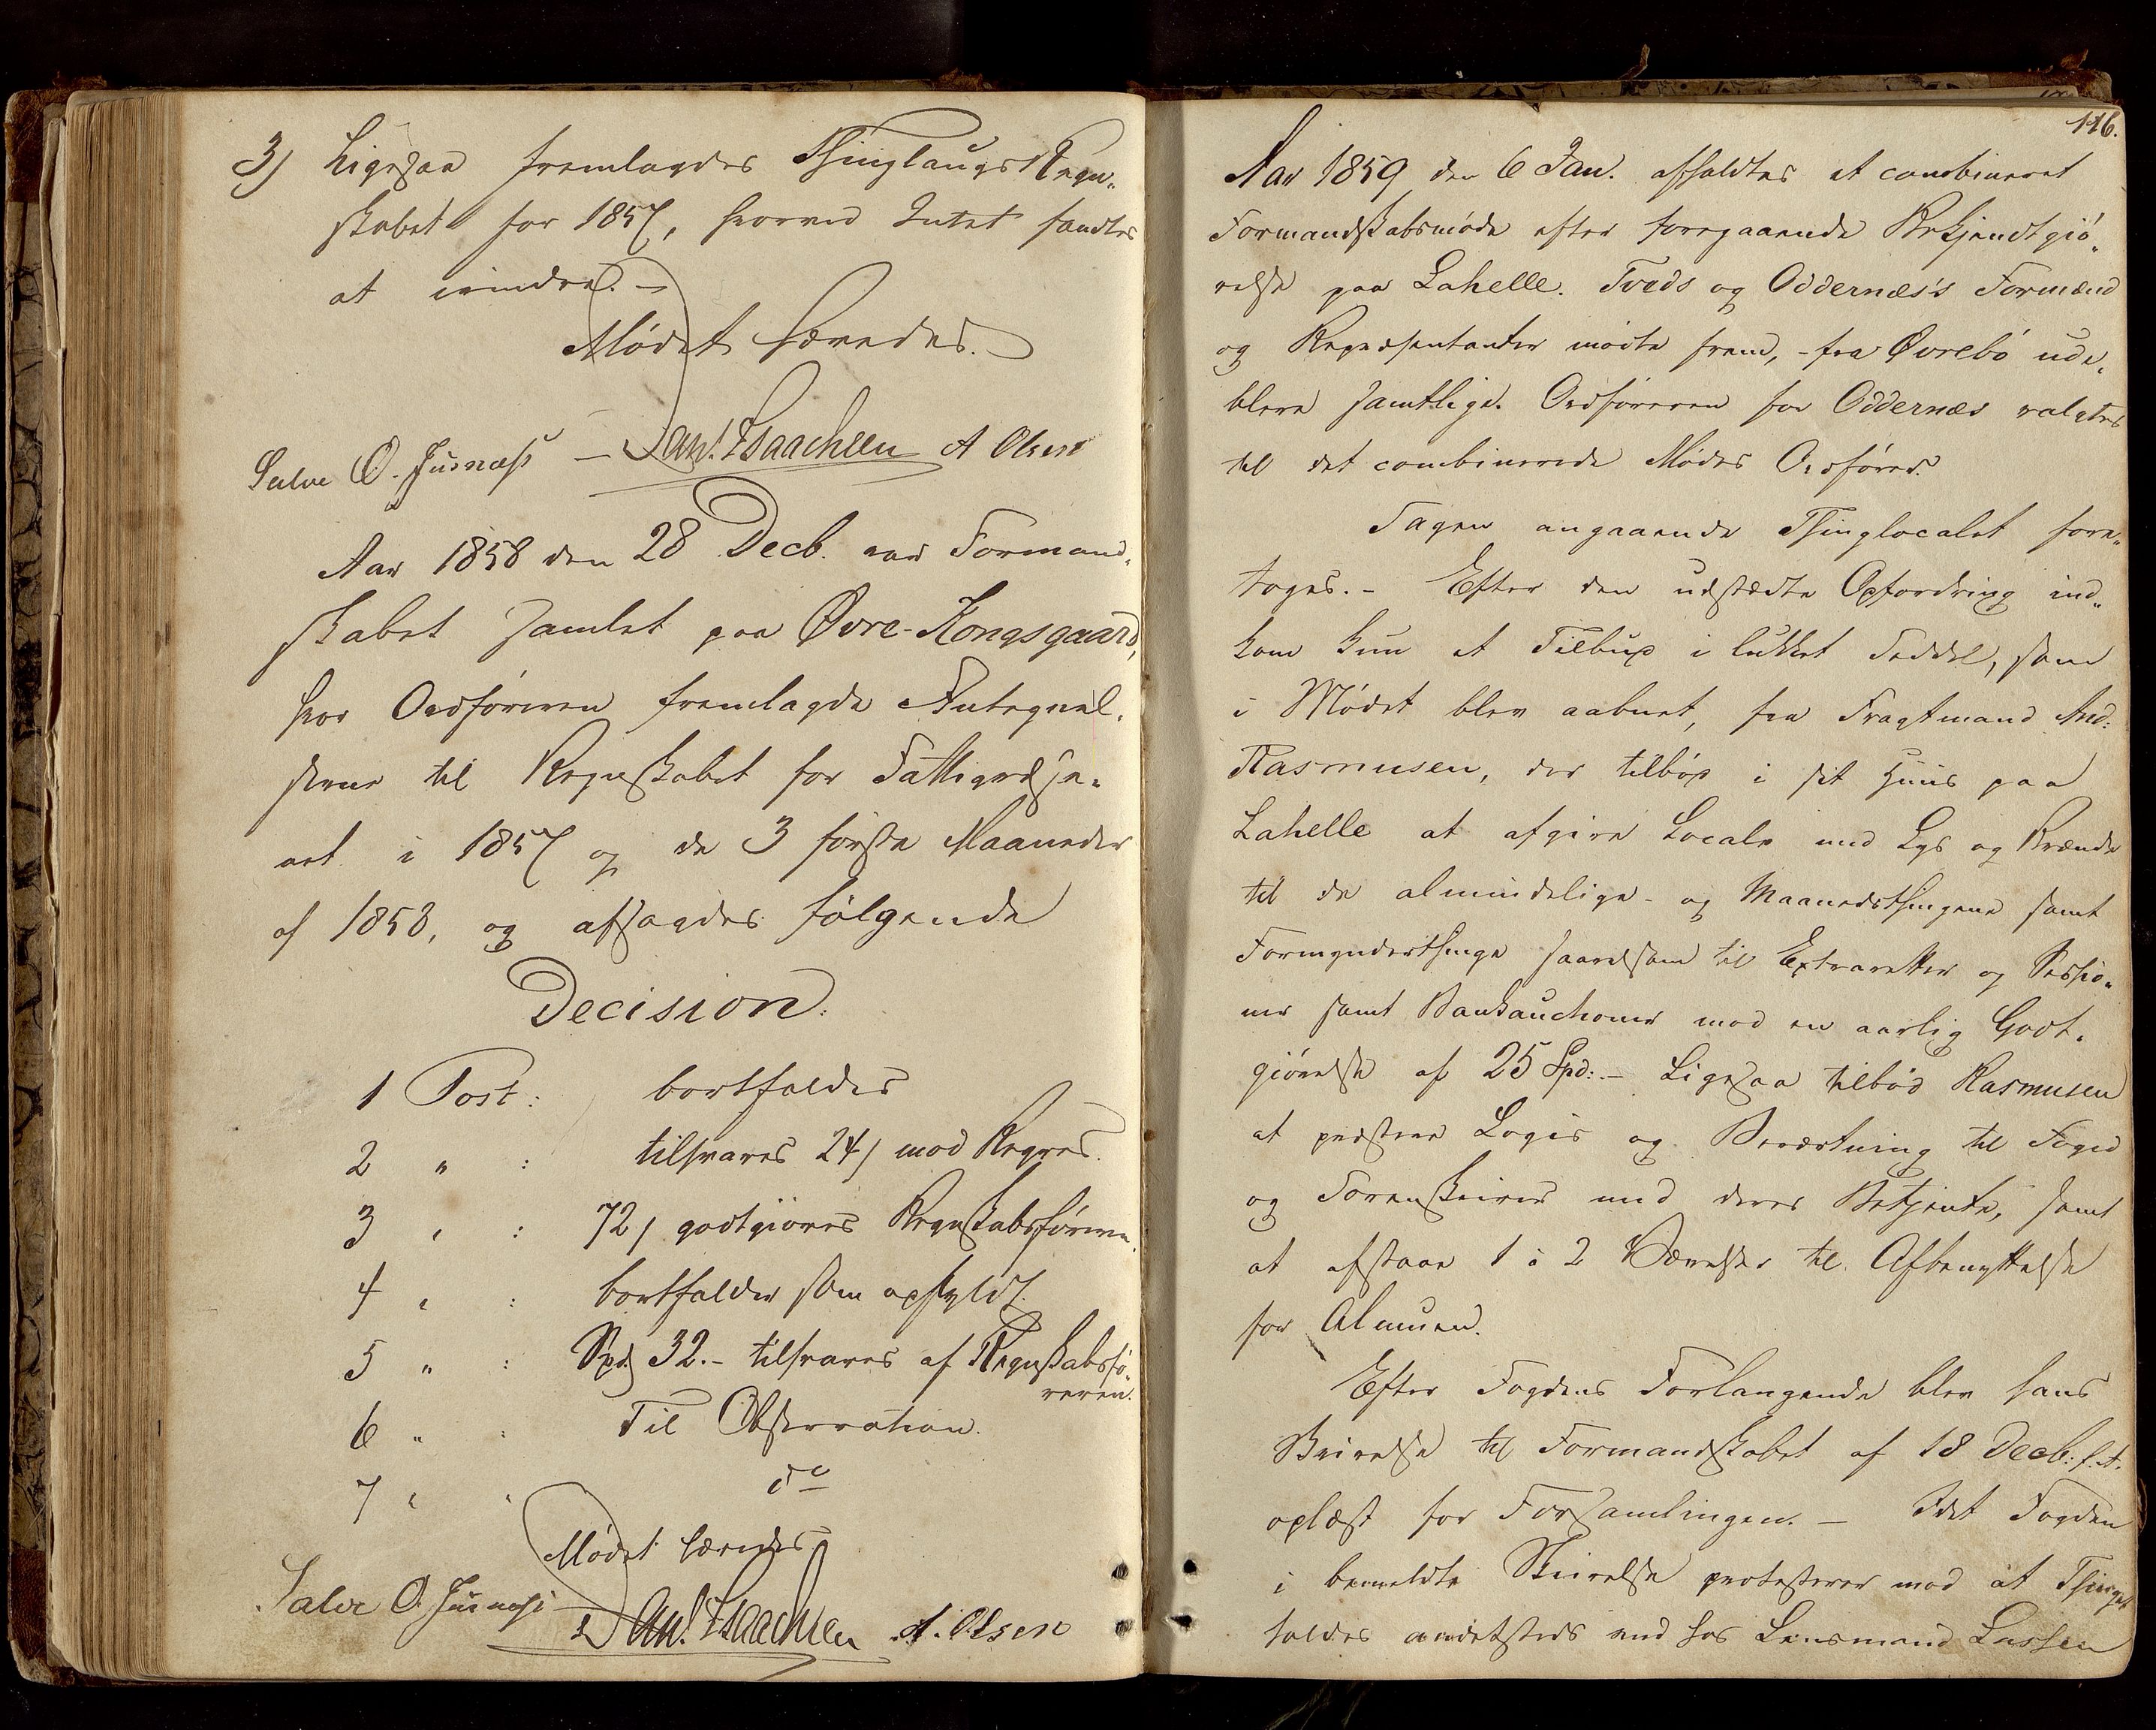 3) Ligesaa fremlagdes Thinglaugs Regn-
skabet for 1857, hvorved Intet fandtes
at erindre. -
Mødet hævedes.
Salve O. Jusnæss - Dan. Isaachsen A Olsen
Aar 1858 den 28 Decb. var Formand-
skabet samlet paa Øvre-Kongsgaard,
hvor Ordføreren fremlagde Antegnel-
serne til Regnskabet for Fattigvæse-
net i 1857 og de 3 første Maaneder
af 1858, og afsagdes følgende
Decision:
1 Post: bortfalder
2 " : tilsvares 24 / mod Regres.
3 " : 72 / godtgiøres Regnskabsføreren.
4 " : bortfalder som opfyldt.
5 " : Spd 32.- tilsvares af Regnskabsfø-
reren.
6 " : Til Observation.
7 " " do
Mødet hævedes
Salve O. Jusnæss - Dan. Isaachsen A. Olsen
116.
Aar 1859 den 6 Jan. afholdtes et combineret
Formandskabsmøde efter foregaaende Bekjendtgiø-
relse paa Lahelle. Tveds og Oddernæs's Formænd
og Repræsentanter mødte frem, - fra Øvrebø ude-
bleve samtlige. Ordføreren for Oddernæs valgtes
til det combinerede Mødes Ordfører.
Sagen angaaende Thinglocalet fore-
toges. - Efter den udstædte Opfordring ind-
kom kun et Tilbud i lukket Seddel, som
i Mødet blev aabnet, fra Fragtmand And:
Rasmusen, der tilbød i sit Huus paa
Lahelle at afgive Locale med Lys og Brænde
til de almindelige- og Maanedsthingene samt
Formynderthinge saavelsom til Extraretter og Sessio-
ner samt Bankauctioner mod en aarlig Godt-
giørelse af 25 Spd: - Ligesaa tilbød Rasmusen
at præstere Logis og Beværtning til Foged
og Sorenskriver med deres Betjente, samt
at afstaae 1 à 2 Værelser til Afbenyttelse
for Almuen.
Efter Fogdens Forlangende blev hans
Skrivelse til Formandskabet af 18 Decb: f. A.
oplæst for Forsamlingen. - Idet Fogden
i bemeldte Skrivelse protesterer mod at Thinget
holdes andetsteds end hos Lensmand Lassen